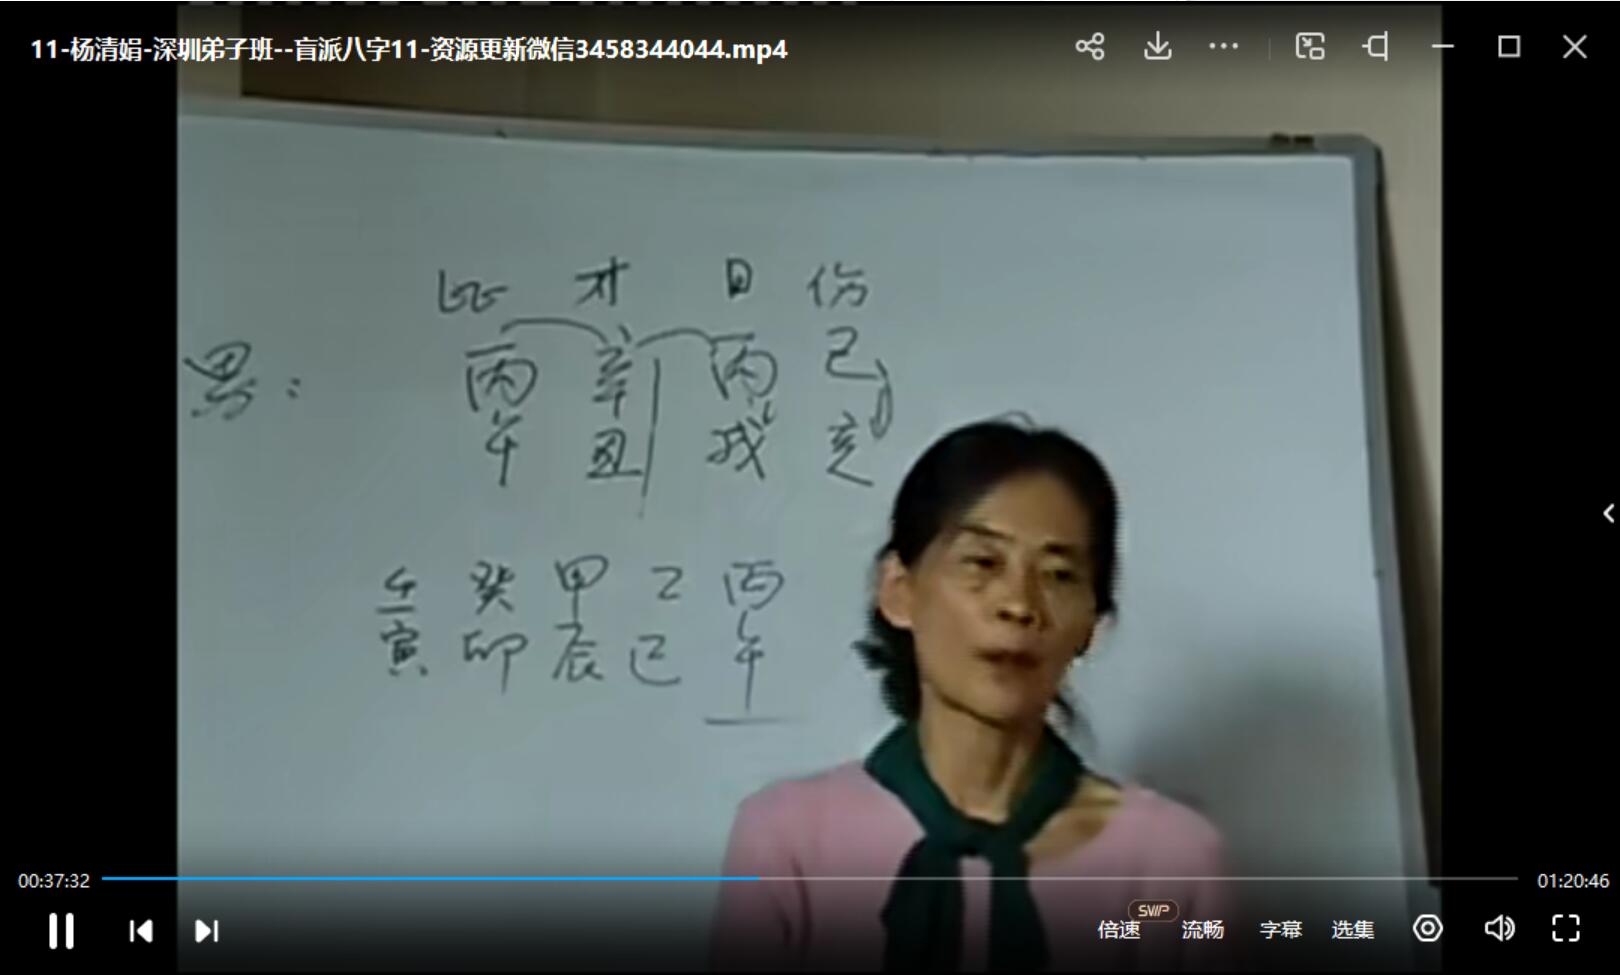 11-杨清娟-深圳弟子班--盲派八字11-资源更新微信3458344044.mp4
比 才 日 伤
男： 丙 辛 丙 己
午 丑 戌 亥
壬 癸 甲 乙 丙
寅 卯 辰 巳 午
00:37:32
01:20:46
SVIP
倍速 流畅 字幕 选集